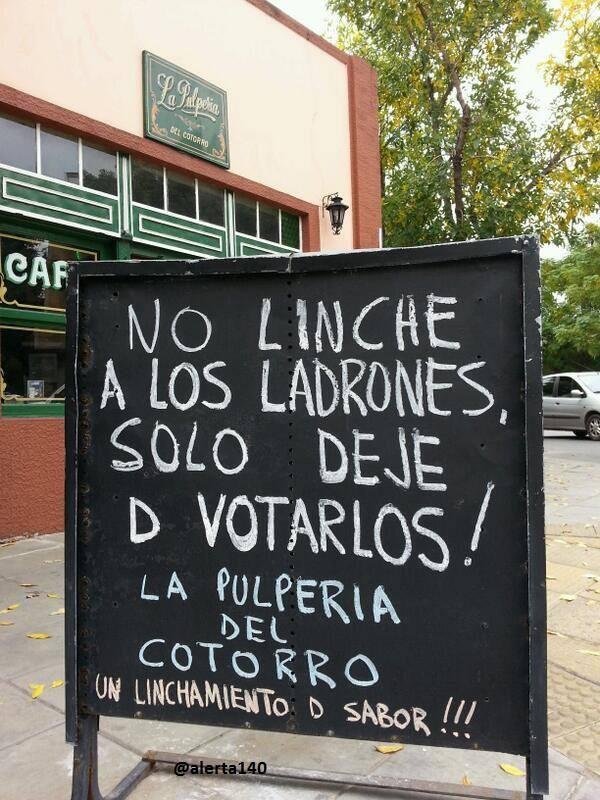 La Pulperia
DEL COTORRO
CAF
NO LINCHE
A LOS LADRONES,
SOLO DEJE
D VOTARLOS!
LA PULPERIA
DEL
COTORRO
UN LINCHAMIENTO D SABOR!!!
@alerta140